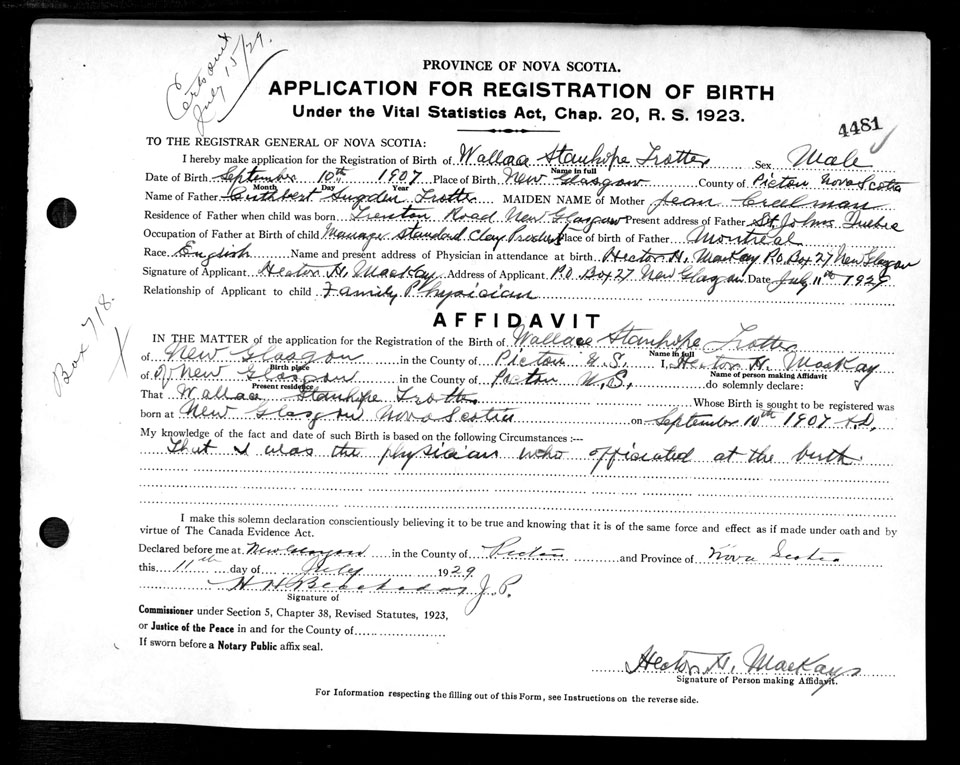 Cert sent
July 15/29.
PROVINCE OF NOVA SCOTIA.
APPLICATION FOR REGISTRATION OF BIRTH
Under the Vital Statistics Act, Chap. 20, R. S. 1923.
4481
TO THE REGISTRAR GENERAL OF NOVA SCOTIA:
I hereby make application for the Registration of Birth of Wallace Stanhope Trotter Sex Male
Name in full
Date of Birth September 10th 1907 Place of Birth New Glasgow County of Pictou Nova Scotia
Month Day Year
Name of Father Cuthbert Sugden Trotter MAIDEN NAME of Mother Jean Creelman
Residence of Father when child was born Trenton Road New Glasgow Present address of Father St. Johns Quebec
Occupation of Father at Birth of child Manager Standard Clay Products Place of birth of Father Montreal
Race English Name and present address of Physician in attendance at birth Hector H. MacKay P.O. Box 27 New Glasgow
Signature of Applicant Hector H. MacKay Address of Applicant P.O. Box 27 New Glasgow Date July 11th 1929
Relationship of Applicant to child Family Physician
Box 718.
AFFIDAVIT
IN THE MATTER of the application for the Registration of the Birth of Wallace Stanhope Trotter
Name in full
of New Glasgow in the County of Pictou N.S. I, Hector H. MacKay
Birth place Name of person making Affidavit
of New Glasgow in the County of Pictou N.S. do solemnly declare:
Present residence
That Wallace Stanhope Trotter Whose Birth is sought to be registered was
born at New Glasgow Nova Scotia on September 10th 1907 A.D.
My knowledge of the fact and date of such Birth is based on the following Circumstances :—
That I was the physician who officiated at the birth
I make this solemn declaration conscientiously believing it to be true and knowing that it is of the same force and effect as if made under oath and by
virtue of The Canada Evidence Act.
Declared before me at New Glasgow in the County of Pictou and Province of Nova Scotia
this 11th day of July 1929
H H J.P.
Signature of
Commissioner under Section 5, Chapter 38, Revised Statutes, 1923,
or Justice of the Peace in and for the County of
If sworn before a Notary Public affix seal.
Hector H. MacKay
Signature of Person making Affidavit.
For Information respecting the filling out of this Form, see Instructions on the reverse side.